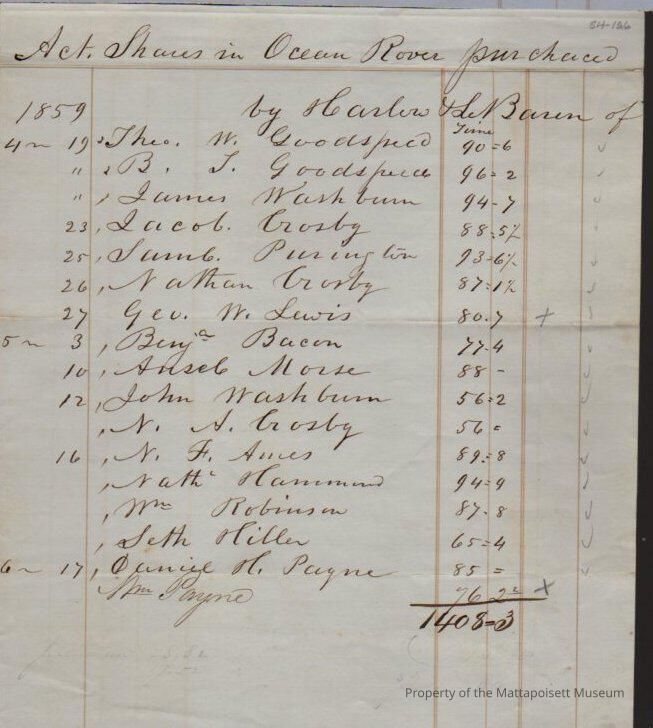 54-126
Act. Shares in Ocean Rover purchased
1859 by Harlow & LeBaron of
Time
4 m 19, Theo. W. Goodspeed 90=6
" , B. T. Goodspeed 96=2
" , James Washburn 94-7
23, Jacob. Crosby 88=5½
25, Saml. Purington 93=6½
26, Nathan Crosby 87=1½
27 Geo. W. Lewis 80.7 +
5 m 3, Benja Bacon 77.4
10, Ansel Morse 88 -
12, John Washburn 56=2
, N. A. Crosby 56 =
16, N. F. Ames 89=8
, Nathl Hammond 94=9
, Wm Robinson 87-8
, Seth Hiller 65=4
6 m 17, Daniel H. Payne 85 =
Wm Payne 76 2 +
1408=3
Property of the Mattapoisett Museum